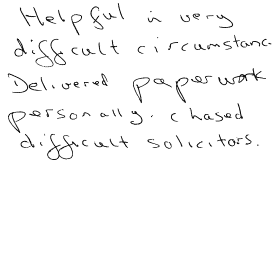 Helpful in very
difficult circumstanc
Delivered paperwork
personally. chased
difficult solicitors.